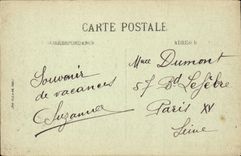 CARTE POSTALE
CORRESPONDANCE
ADRESSE
Mme Dumont
57 Bd Lefèbre
Paris XV
Seine
Souvenir
de vacances
Suzanne